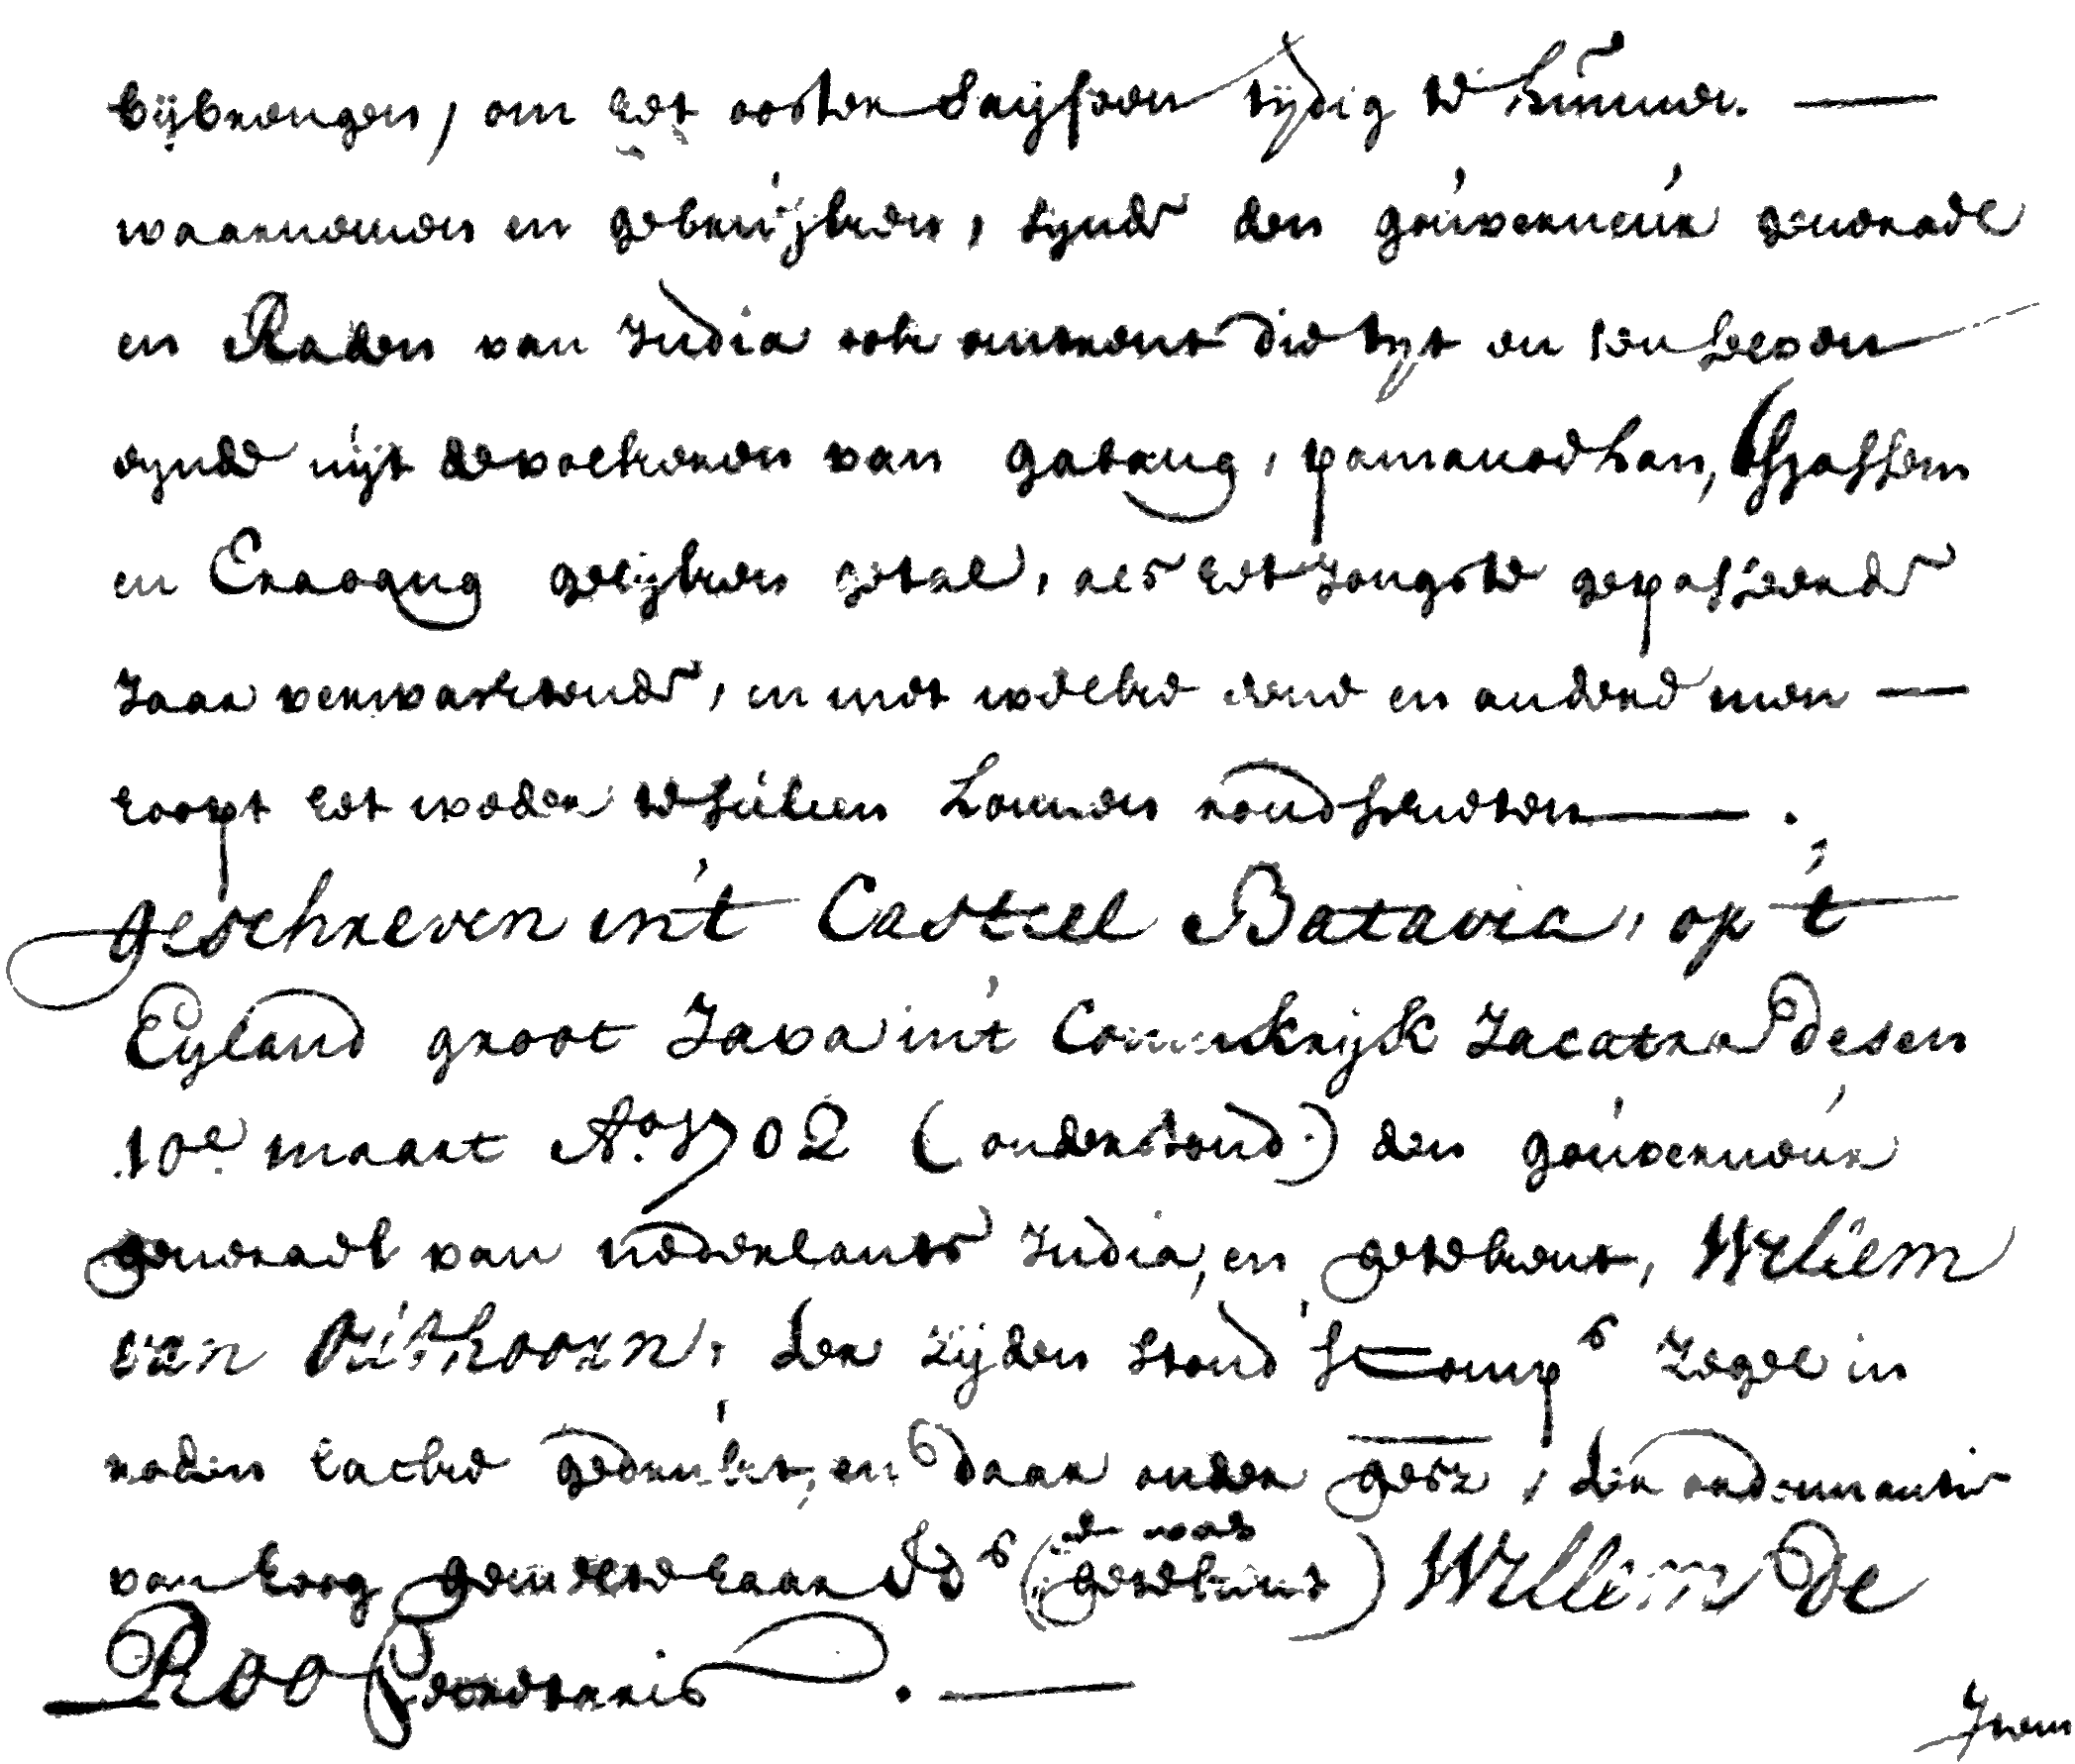 bijbrengen, om het ooster saijsoen tijdig te kunnen.
waarnemen en gebruijken, synde den gouverneur generael
en Raden van India ook omtrent die tijt en ten selven
eijnde uijt de volkeren van gabang, pamanoekan, Tsiassem
en Craoang gelijken getal, als het Jongste gepasseerde
Jaar verwagtende, en met welke eene en andere men
hoopt het weder te sullen konnen rondschieten.
geschreven in't Casteel Batavia, op 't
Eyland groot Java in't Coninkrijk Jacatra desen
10e. maart Ao. 1702 (onderstond.) den gouverneur
generael van nederlants India, en getekent, Willem
van Outhoorn, ter zijden stond 's Comps zegel in
roden lacke gedrukt, en daar onder gesz, ter ordonnantie
van hoog gemelte haar Eds (en was getekent) Willem De
Roo Secretaris.
Item